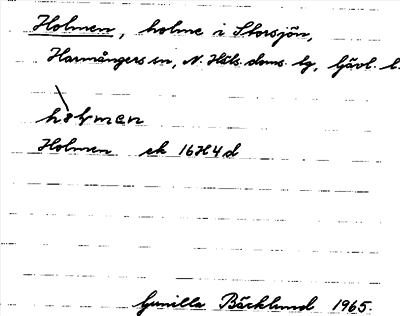 Holmen, holme i Storsjön,
Harmångers sn, N. Häls. doms. lg, Gävl. l.
hòlmen
Holmen ek 16H4d
Gunilla Bäcklund 1965.